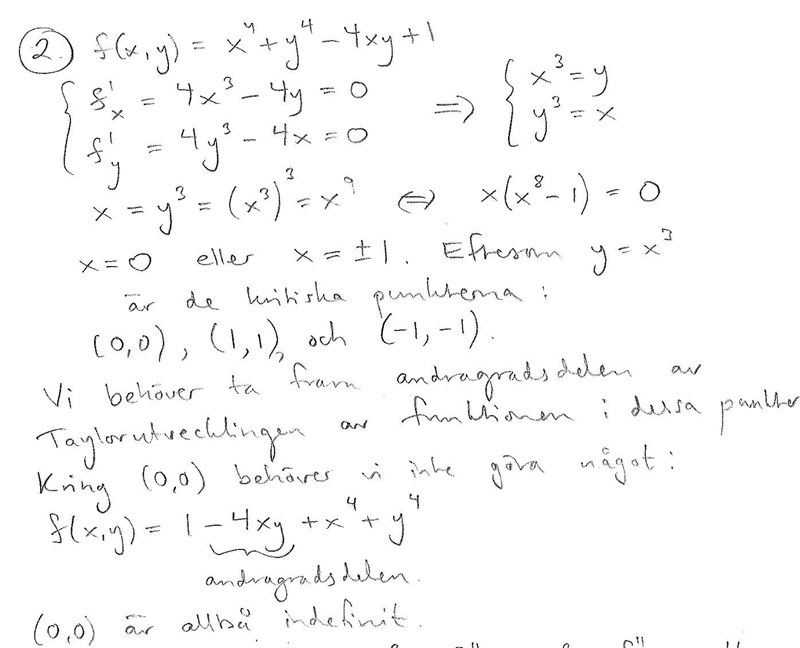 2. f(x,y) = x⁴ + y⁴ - 4xy + 1
{ f'ₓ = 4x³ - 4y = 0 ⟹ { x³ = y
f'ᵧ = 4y³ - 4x = 0 y³ = x
x = y³ = (x³)³ = x⁹ ⟺ x(x⁸ - 1) = 0
x = 0 eller x = ±1. Eftersom y = x³
är de kritiska punkterna:
(0,0), (1,1), och (-1,-1).
Vi behöver ta fram andragradsdelen av
Taylorutvecklingen av funktionen i dessa punkter
Kring (0,0) behöver vi inte göra något:
f(x,y) = 1 - 4xy + x⁴ + y⁴
andragradsdelen.
(0,0) är alltså indefinit.